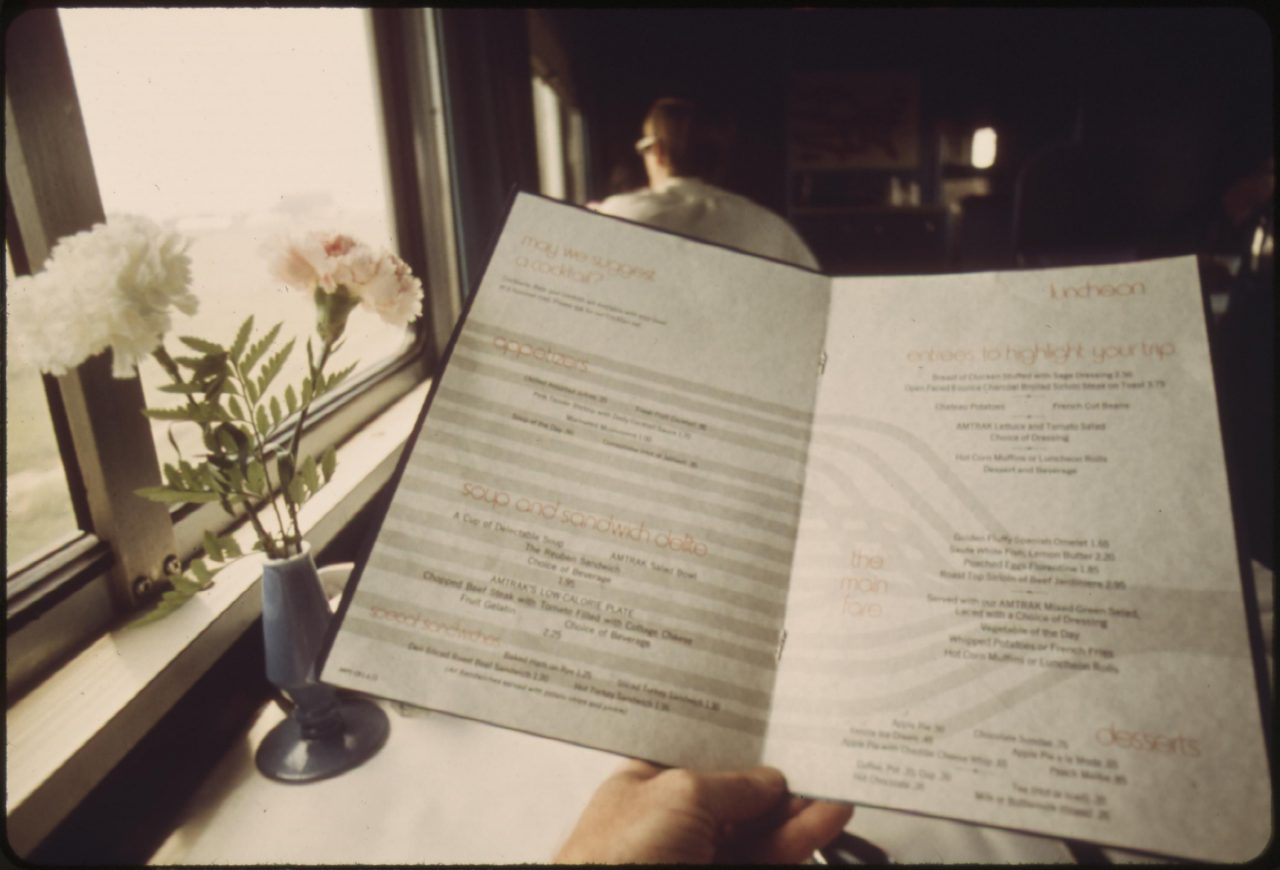 may we suggest
a cocktail?
appetizers
Soup of the Day
Marinated Mushrooms 1.00
soup and sandwich delite
A Cup of Delectable Soup AMTRAK Salad Bowl
The Reuben Sandwich
Choice of Beverage
1.95
AMTRAK'S LOW-CALORIE PLATE
Chopped Beef Steak with Tomato Filled with Cottage Cheese
Fruit Gelatin Choice of Beverage
2.25
special sandwiches
Baked Ham on Rye 1.25 Sliced Turkey Sandwich
Deli Sliced Roast Beef Sandwich Hot Turkey Sandwich
(All Sandwiches served with potato chips and pickle)
luncheon
entrees to highlight your trip
Breast of Chicken Stuffed with Sage Dressing
Open Faced Charcoal Broiled Sirloin Steak on Toast 3.75
Chateau Potatoes French Cut Beans
AMTRAK Lettuce and Tomato Salad
Choice of Dressing
Hot Corn Muffins or Luncheon Rolls
Dessert and Beverage
the
main
fare
Golden Fluffy Spanish Omelet 1.65
Saute White Fish, Lemon Butter 2.20
Poached Eggs Florentine 1.85
Roast Top Sirloin of Beef Jardiniere 2.95
Served with our AMTRAK Mixed Green Salad,
Laced with a Choice of Dressing
Vegetable of the Day
Whipped Potatoes or French Fries
Hot Corn Muffins or Luncheon Rolls
desserts
Apple Pie Chocolate Sundae
Ice Cream Apple Pie a la Mode
Apple Pie with Cheddar Cheese Peach Melba
Coffee, Pot Cup Tea
Hot Chocolate Milk or Buttermilk